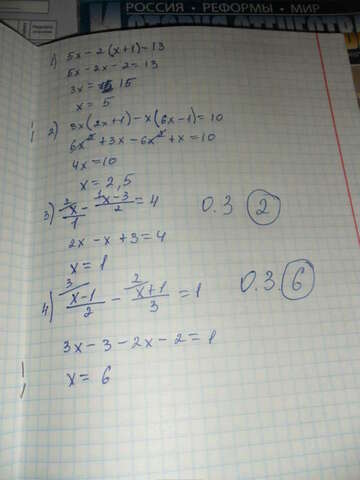 РОССИЯ · РЕФОРМЫ · МИР
1) 5x - 2(x+1) = 13
5x - 2x - 2 = 13
3x = 15
x = 5
2) 3x(2x+1) - x(6x-1) = 10
6x² + 3x - 6x² + x = 10
4x = 10
x = 2,5
3) ²x/1 - ¹x-3/2 = 4 О.З (2)
2x - x + 3 = 4
x = 1
4) ³x-1/2 - ²x+1/3 = 1 О.З. (6)
3x - 3 - 2x - 2 = 1
x = 6